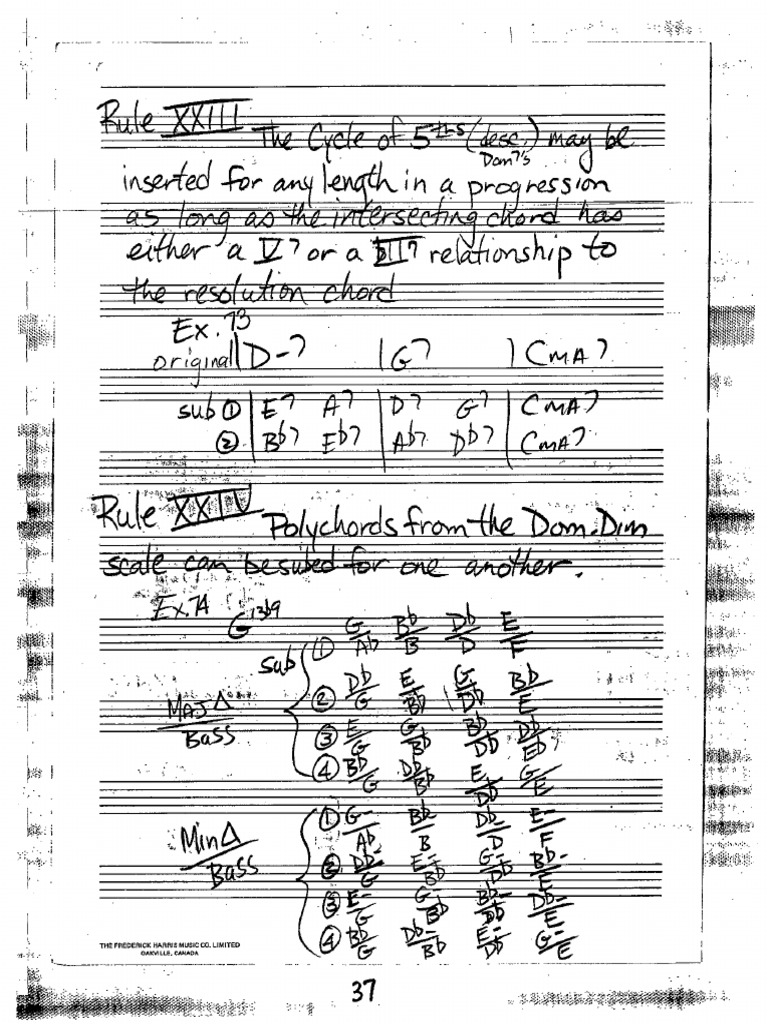 Rule XXIII The Cycle of 5ths (desc.) may be
Dom7's
inserted for any length in a progression
as long as the intersecting chord has
either a V7 or a bII7 relationship to
the resolution chord
Ex. 73
original | D-7 | G7 | CMA7
sub ① | E7 A7 | D7 G7 | CMA7
② | Bb7 Eb7 | Ab7 Db7 | CMA7
Rule XXIV Polychords from the Dom. Dim
scale can be subed for one another.
Ex. 74 G13b9
sub ① G/Ab Bb/B Db/D E/F
② Db/G E/Bb G/Db Bb/E
MAJ Δ/Bass
③ E/G G/Bb Bb/Db Db/Eb
④ Bb/G Db/Bb E/Db G/E
Min Δ/Bass
① G-/Ab Bb-/B Db-/D E-/F
② Db-/G E-/Bb G-/Db Bb-/E
③ E-/G G-/Bb Bb-/Db Db-/E
④ Bb-/G Db-/Bb E-/Db G-/E
THE FREDERICK HARRIS MUSIC CO. LIMITED
OAKVILLE, CANADA
37